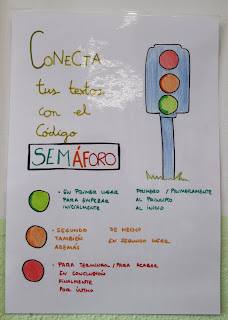 CONECTA
tus textos
con el
Código
SEMÁFORO
· EN PRIMER LUGAR PRIMERO / PRIMERAMENTE
PARA EMPEZAR AL PRINCIPIO
INICIALMENTE AL INICIO
· SEGUNDO DE HECHO
TAMBIÉN EN SEGUNDO LUGAR
ADEMÁS
· PARA TERMINAR / PARA ACABAR
EN CONCLUSIÓN
FINALMENTE
POR ÚLTIMO